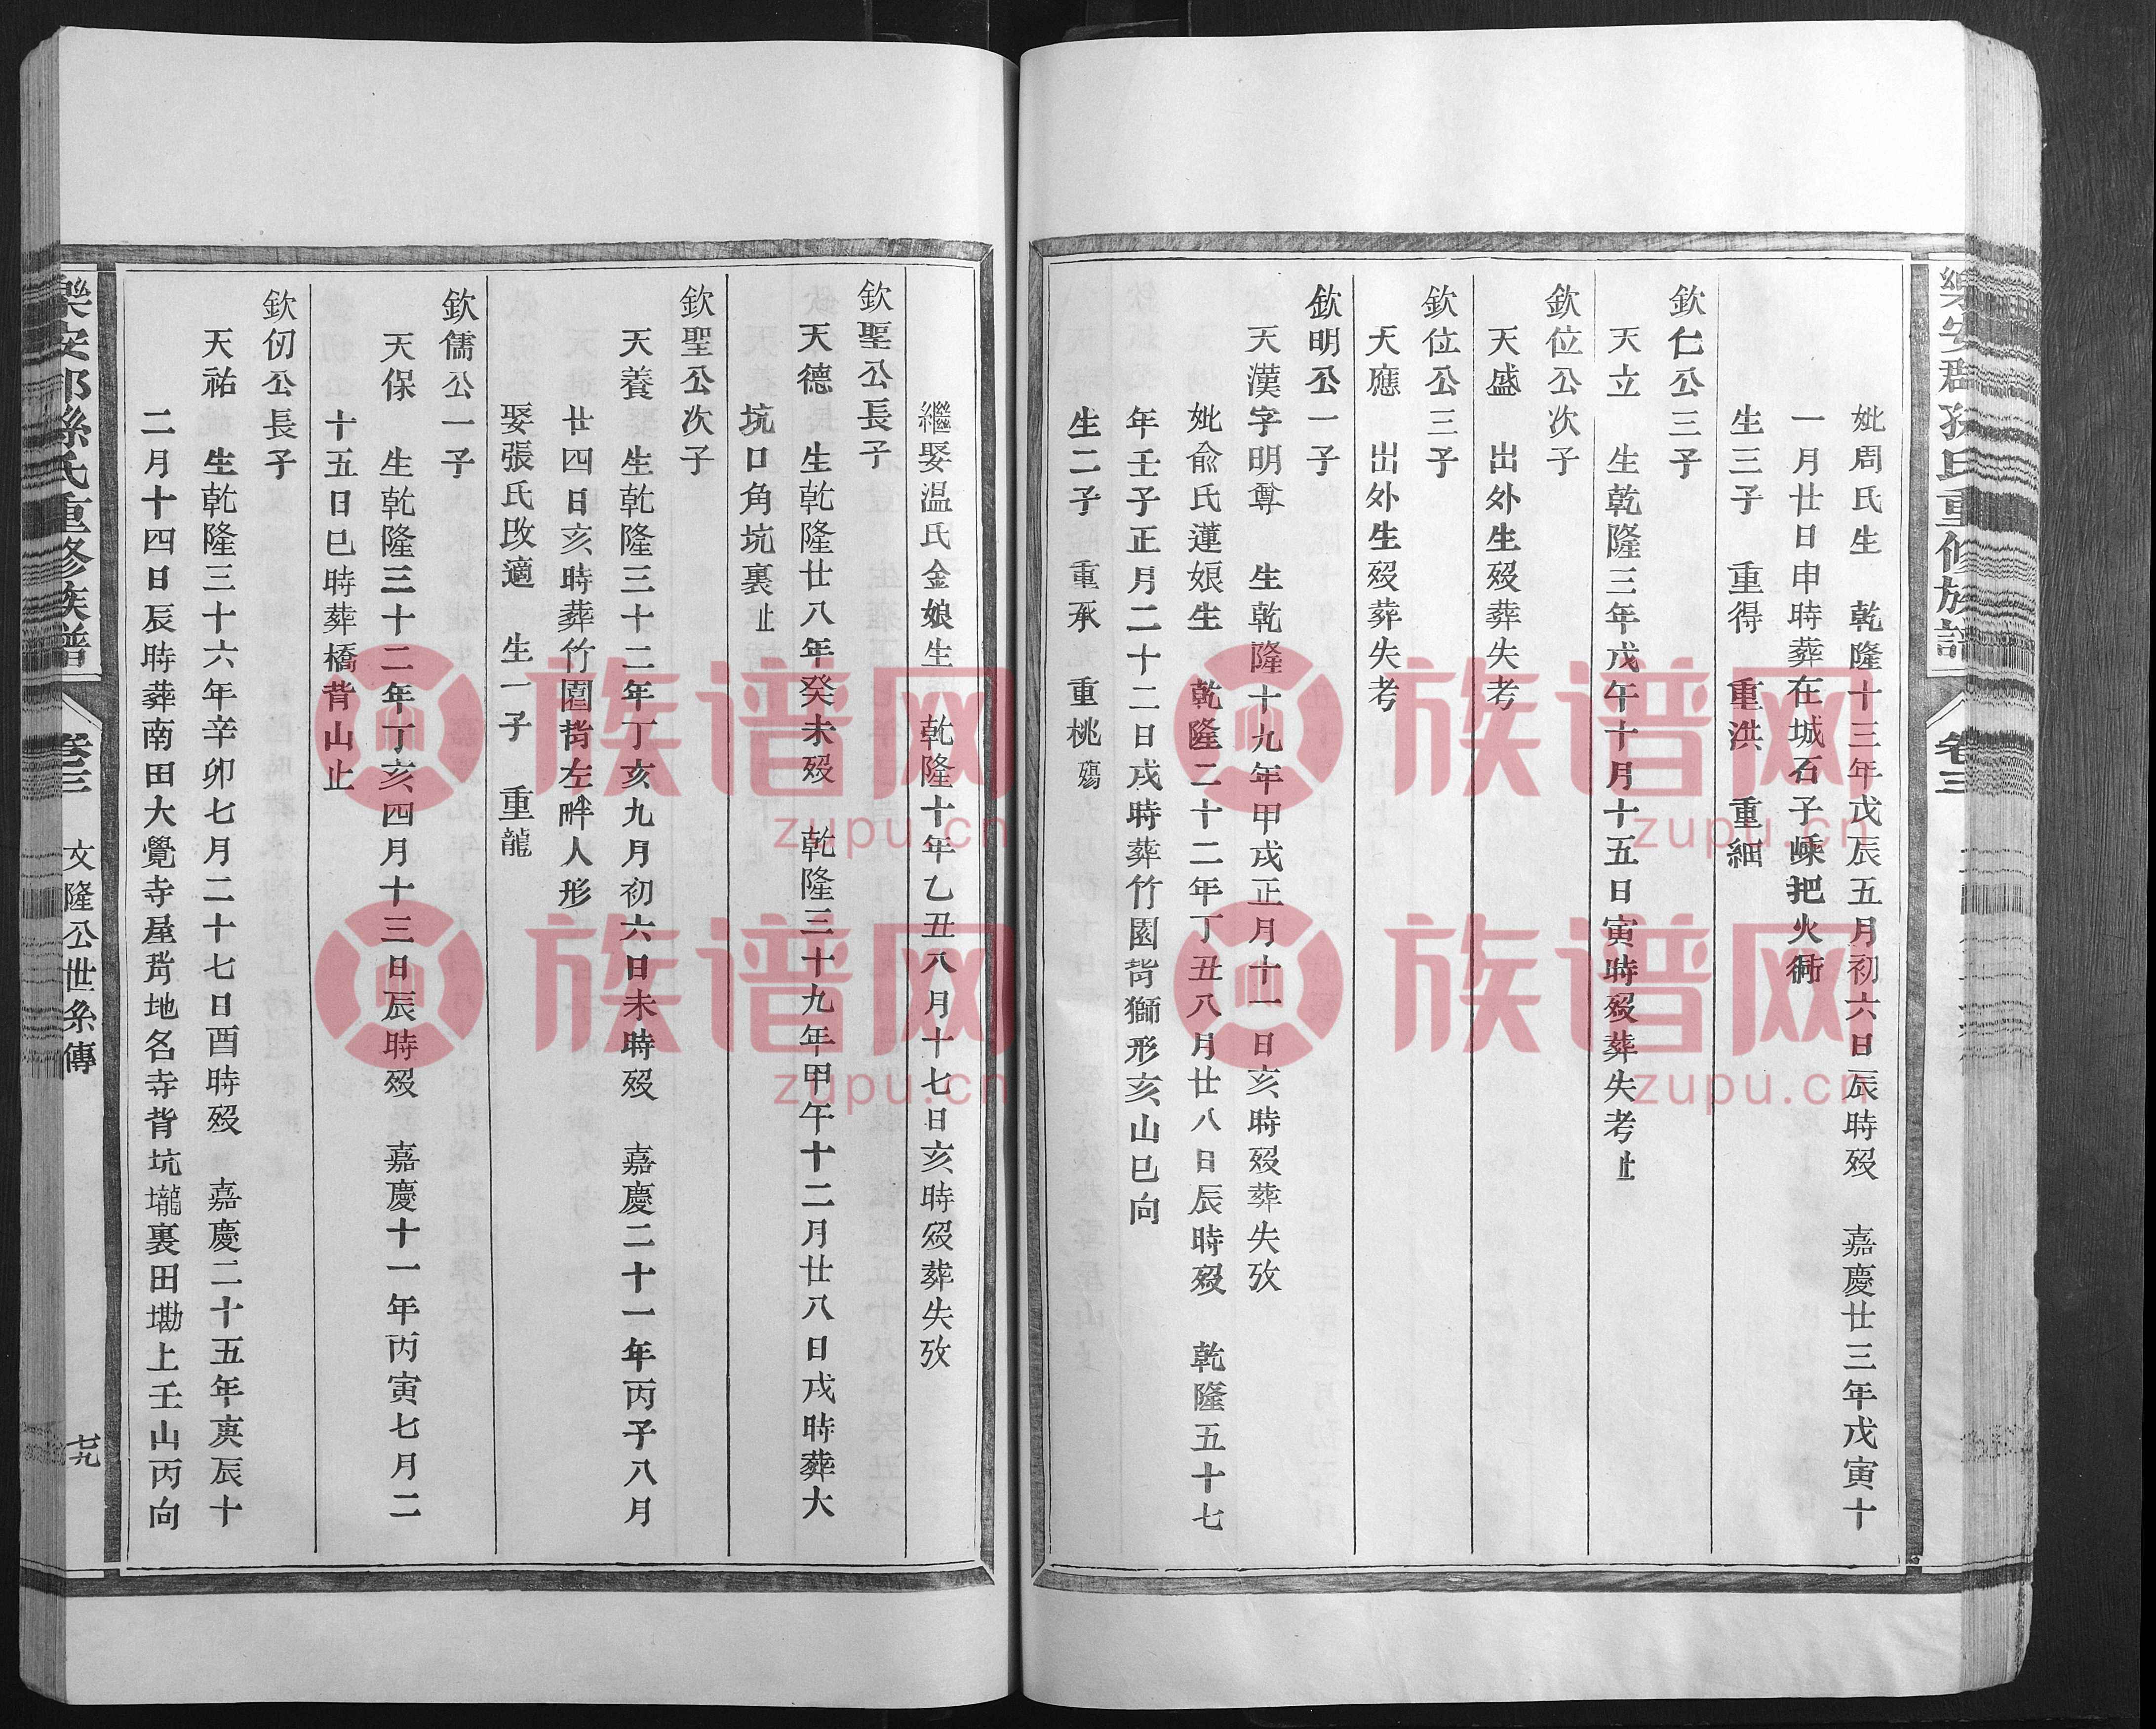 妣周氏生　乾隆十三年戊辰五月初六日辰時殁　嘉慶廿三年戊寅十
一月廿日申時葬在城石子㟧把火衕
生三子　重得　重洪　重細
欽仁公三子
天立　生乾隆三年戊午十月十五日寅時殁葬失考止
欽位公次子
天盛　出外生殁葬失考
欽位公三子
天應　出外生殁葬失考
欽明公一子
天漢字明尊　生乾隆十九年甲戌正月十一日亥時殁葬失攷
妣俞氏蓮娘生　乾隆二十二年丁丑八月廿八日辰時殁　乾隆五十七
年壬子正月二十二日戌時葬竹園背獅形亥山巳向
生二子　重承　重桃殤
樂安郡孫氏重修族譜　卷三
繼娶温氏金娘生　乾隆十年乙丑八月十七日亥時殁葬失攷
欽聖公長子
天德　生乾隆廿八年癸未殁　乾隆三十九年甲午十二月廿八日戌時葬大
坑口角坑裏止
欽聖公次子
天養　生乾隆三十二年丁亥九月初六日未時殁　嘉慶二十一年丙子八月
廿四日亥時葬竹園背左畔人形
娶張氏改適　生一子　重龍
欽儒公一子
天保　生乾隆三十二年丁亥四月十三日辰時殁　嘉慶十一年丙寅七月二
十五日巳時葬橋背山止
欽仞公長子
天祐　生乾隆三十六年辛卯七月二十七日酉時殁　嘉慶二十五年庚辰十
二月十四日辰時葬南田大覺寺屋背地名寺背坑壠裏田墈上壬山丙向
樂安郡孫氏重修族譜　卷三　文隆公世系傳　七九
族谱网
zupu.cn
族谱网
zupu.cn
族谱网
zupu.cn
族谱网
zupu.cn